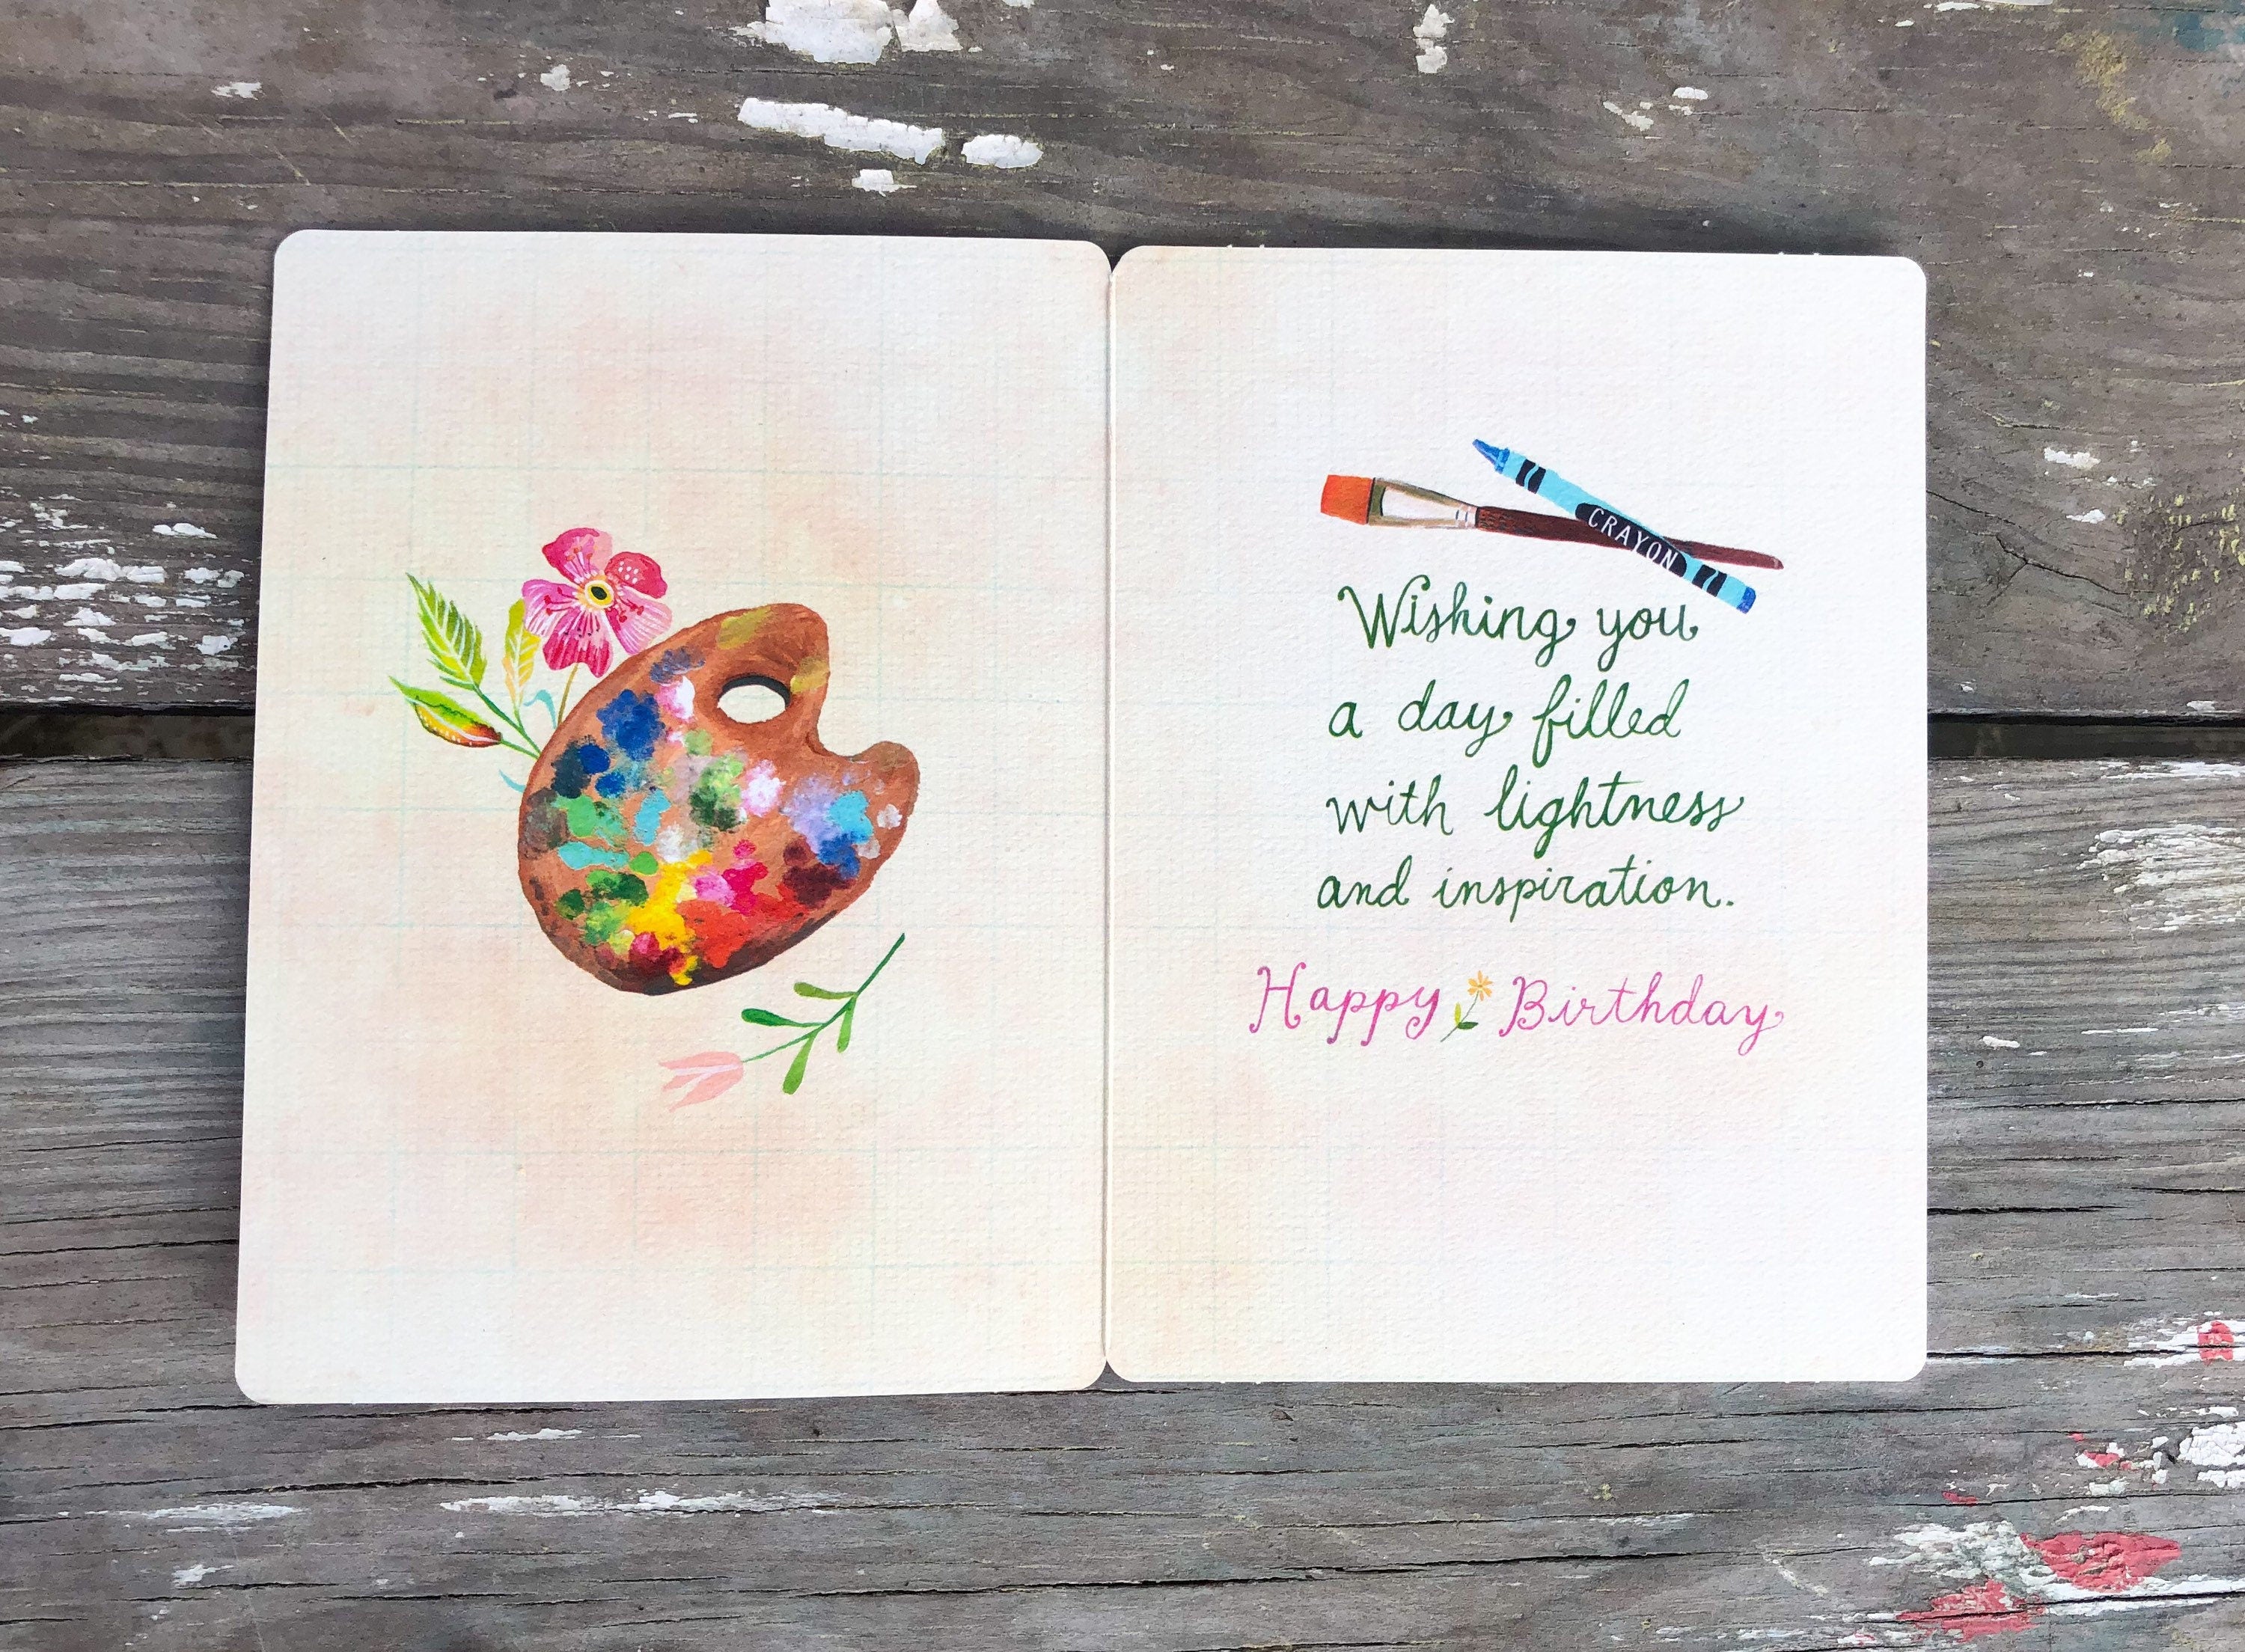 CRAYON
Wishing you
a day filled
with lightness
and inspiration.
Happy Birthday